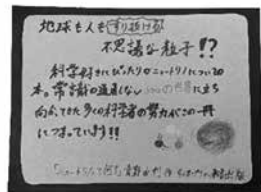 地球も人もすり抜ける
不思議な粒子!?
科学好きにぴったりなニュートリノについての
本。常識の通用しない の世界に立ち
向かってきた多くの科学者の努力がこの一冊
につまっています!!
ニュートリノって何?